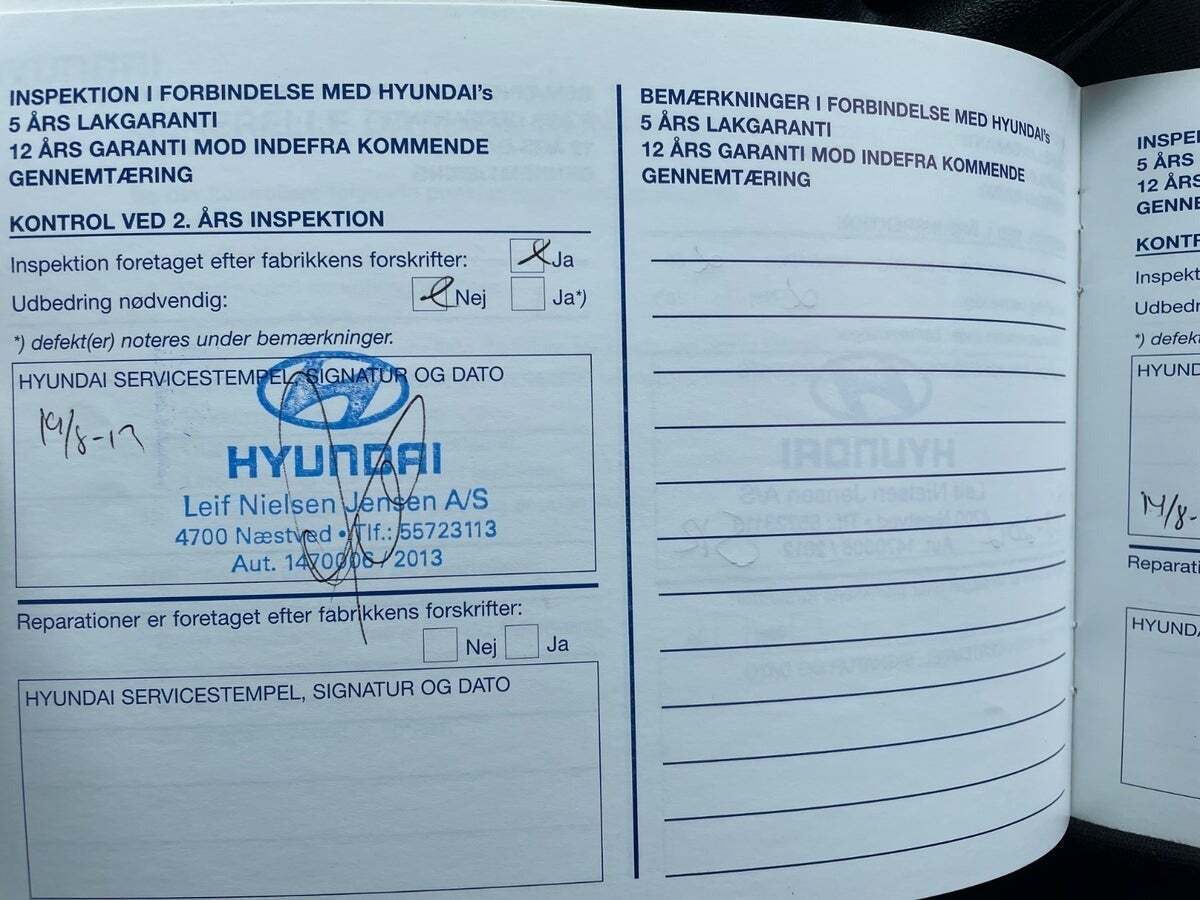 INSPEKTION I FORBINDELSE MED HYUNDAI's
5 ÅRS LAKGARANTI
12 ÅRS GARANTI MOD INDEFRA KOMMENDE
GENNEMTÆRING
KONTROL VED 2. ÅRS INSPEKTION
Inspektion foretaget efter fabrikkens forskrifter: Ja
Udbedring nødvendig: Nej Ja*)
*) defekt(er) noteres under bemærkninger.
HYUNDAI SERVICESTEMPEL, SIGNATUR OG DATO
HYUNDAI
Leif Nielsen Jensen A/S
4700 Næstved • Tlf.: 55723113
Aut. 1470006 / 2013
Reparationer er foretaget efter fabrikkens forskrifter:
Nej Ja
HYUNDAI SERVICESTEMPEL, SIGNATUR OG DATO
BEMÆRKNINGER I FORBINDELSE MED HYUNDAI's
5 ÅRS LAKGARANTI
12 ÅRS GARANTI MOD INDEFRA KOMMENDE
GENNEMTÆRING
5 ÅRS
12 ÅRS
14/8-